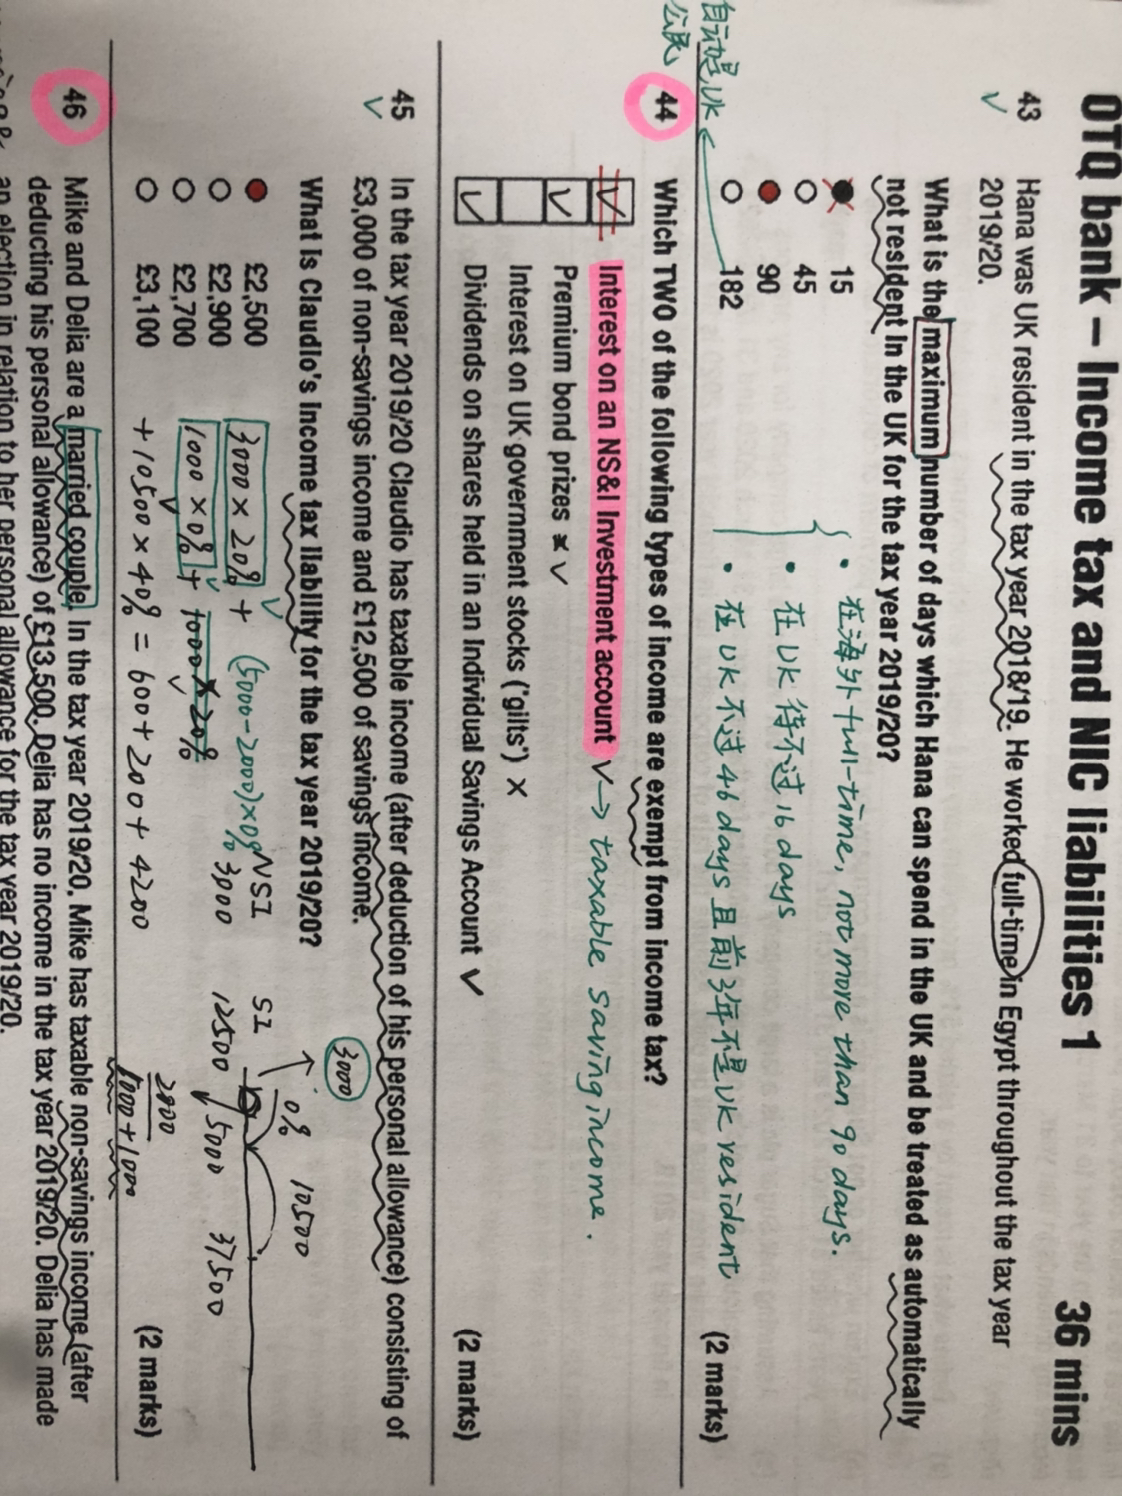 OTQ bank – Income tax and NIC liabilities 1 36 mins
43 Hana was UK resident in the tax year 2018/19. He worked full-time in Egypt throughout the tax year
√ 2019/20.
What is the maximum number of days which Hana can spend in the UK and be treated as automatically
not resident in the UK for the tax year 2019/20?
15 • 在海外full-time, not more than 90 days.
45 • 在UK待不过16 days
90
182 • 在UK不过46 days且前3年不是UK resident
(2 marks)
自动是UK
公民
44 Which TWO of the following types of income are exempt from income tax?
Interest on an NS&I Investment account √ → taxable saving income.
Premium bond prizes √
Interest on UK government stocks ('gilts') ×
Dividends on shares held in an Individual Savings Account √
(2 marks)
45 In the tax year 2019/20 Claudio has taxable income (after deduction of his personal allowance) consisting of
√ £3,000 of non-savings income and £12,500 of savings income.
3000
What is Claudio's income tax liability for the tax year 2019/20?
0% 10500
£2,500 3000 × 20% + (5000-2000)×0% NSI SI
£2,900 3000 12500 5000 37500
£2,700 1000 × 0% + 1000 × 20%
£3,100 + 10500 × 40% = 600 + 200 + 4200
2000
1000 + 1000
(2 marks)
46 Mike and Delia are a married couple. In the tax year 2019/20, Mike has taxable non-savings income (after
deducting his personal allowance) of £13,500. Delia has no income in the tax year 2019/20. Delia has made
an election in relation to her personal allowance for the tax year 2019/20.